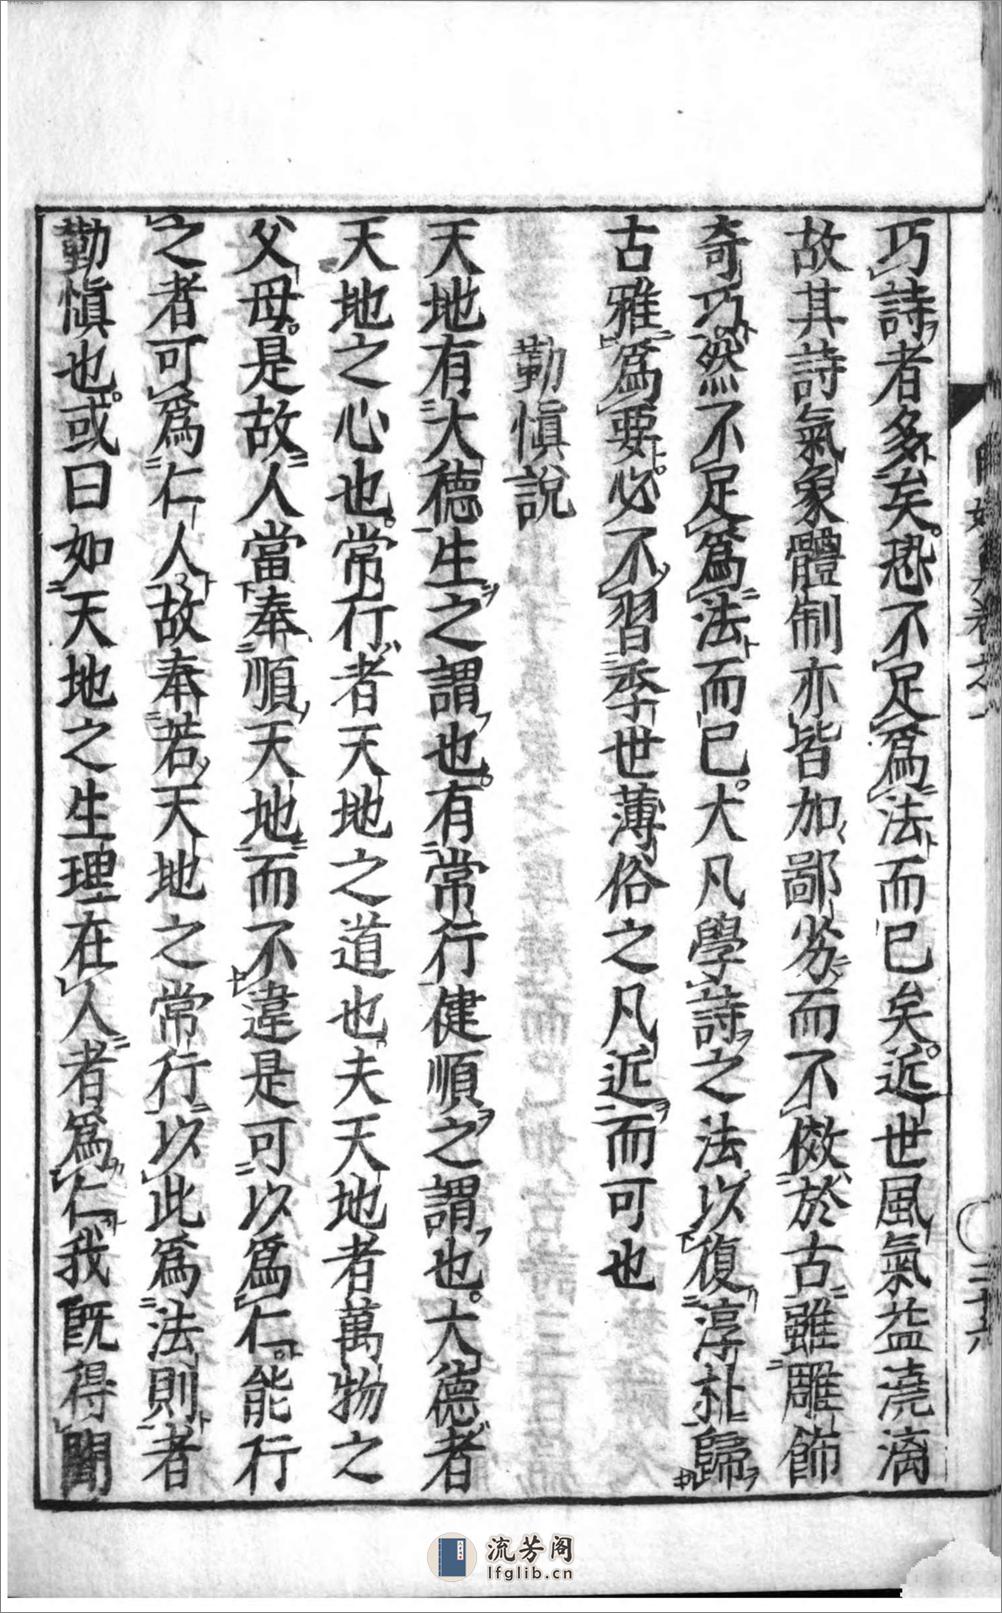 巧詩者多矣恐不足爲法而已矣近世風氣益澆漓
故其詩氣象體制亦皆加鄙劣而不傚於古雖雕飾
奇巧然不足爲法而已大凡學詩之法以復淳朴歸
古雅爲要必不習季世薄俗之凡近而可也
勤愼説
天地有大德生之謂也有常行健順之謂也大德者
天地之心也常行者天地之道也夫天地者萬物之
父母是故人當奉順天地而不違是可以爲仁能行
之者可爲仁人故奉若天地之常行以此爲法則者
勤愼也或曰如天地之生理在人者爲仁我既得聞
卷之一
三十六
流芳阁
lfglib.cn